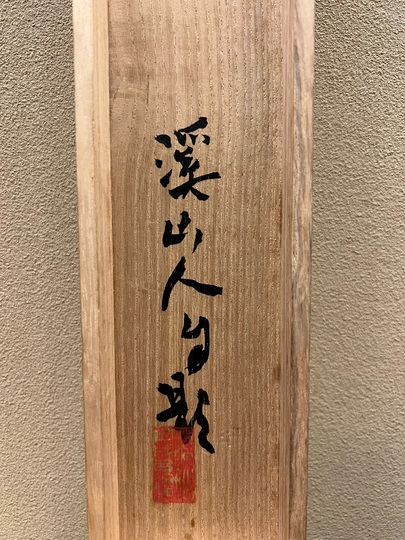 溪山人自題